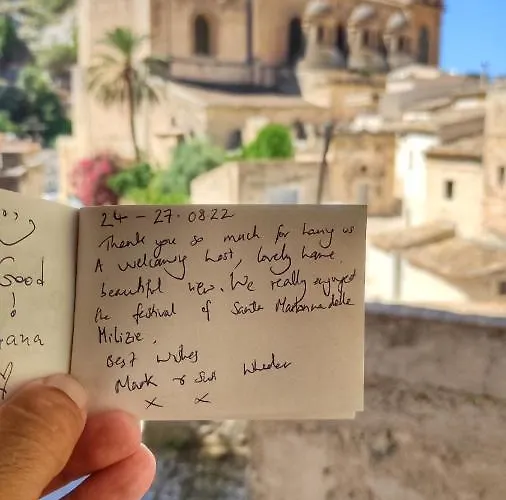 Good
!
ana
24 - 27.08.22
Thank you so much for having us
A welcoming host, lovely home,
beautiful views. We really enjoyed
the festival of Santa Madonna delle
Milizie.
Best wishes
Mark & Sue Wheeler
x x